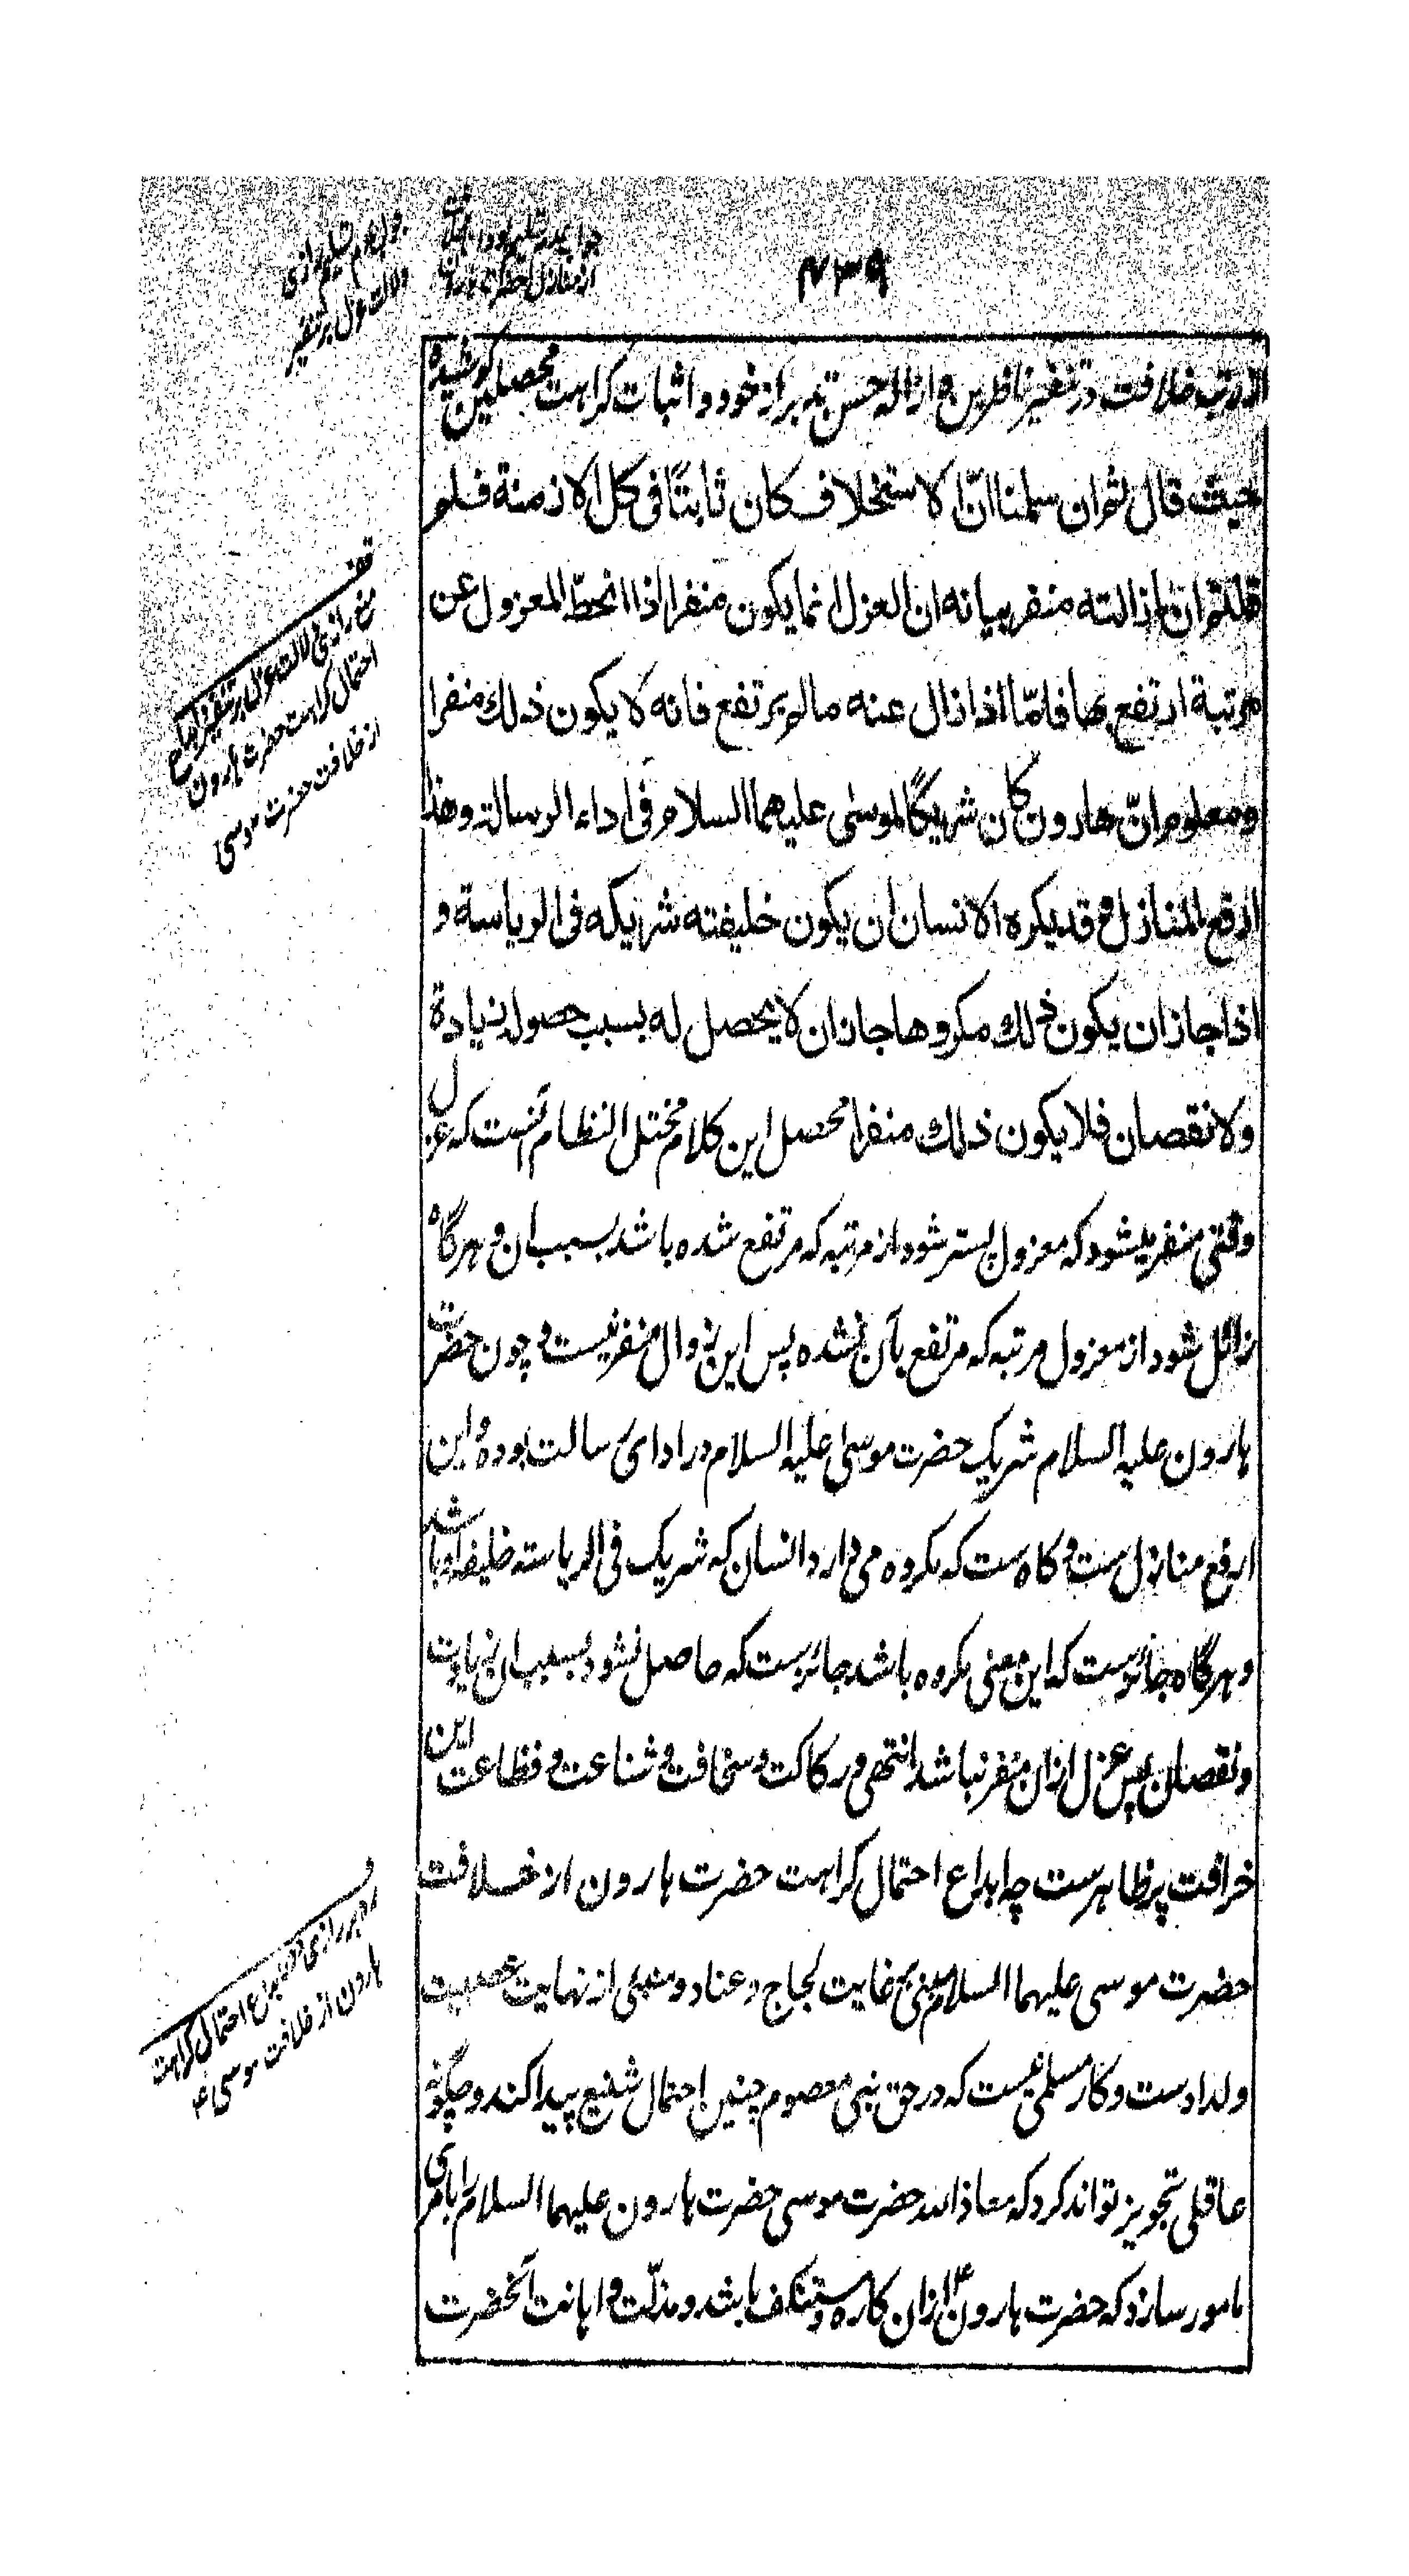 ۷۳۹
از رتبه خلافت در تنفیر ناظرین و ازاله حسن تدبر از خود و اثبات کراهت محصلین کوشیده
حیث قال ثم ان سلمنا انّ الاستخلاف کان ثابتًا فی کل الازمنة فلم
قلتم ان ازالته منفر بیانه ان العزل انما یکون منفرا اذا انحطّ المعزول عن
مرتبة ارتفع بها فامّا اذا زال عنه ما لم یرتفع فانه لا یکون ذلك منفرا
و معلوم انّ هارون کان شریکًا لموسٰی علیهما السلام فی اداء الرسالة و هذا
ارفع المنازل و قد یکره الانسان ان یکون خلیفته شریکه فی الریاسة و
اذا جاز ان یکون ذلك مکروها جاز ان لا یحصل له بسبب حصوله زیادة
ولا نقصان فلا یکون ذلك منفرا محصل این کلام مختل النظام آنست که عزل
وقتی منفر میشود که معزول پستر شود از مرتبه که مرتفع شده باشد بسبب ان و هرگاه
زائل شود از معزول مرتبه که مرتفع بآن نشده پس این زوال منفر نیست و چون حضرت
هارون علیه السلام شریک حضرت موسی علیه السلام در ادای رسالت بوده و این
ارفع منازل ست و گاه ست که مکروه می دارد انسان که شریک فی الریاسته خلیفه او باشد
و هرگاه جائزست که این معنی مکروه باشد جائزست که حاصل نشود بسبب ان زیادت
و نقصان پس عزل ازان منفر نباشد انتهی و رکاکت و سخافت و شناعت و فظاعت این
خرافت پر ظاهرست چه ابداع احتمال کراهت حضرت هارون از خلافت
حضرت موسی علیهما السلام مبنی بر غایت لجاج و عناد و منبئی از نهایت عصبیت
و لداد ست و کار مسلمی نیست که در حق نبی معصوم چنین احتمال شنیع پیدا کند و چگونه
عاقلی تجویز تواند کرد که معاذ الله حضرت موسی حضرت هارون علیهما السلام را بامری
مامور سازد که حضرت هارونؑ ازان کاره و مستنکف باشد و مذلّت و اهانت آنحضرت
منع رازی دلالت عزل بر تنفیر و ابداع
احتمال کراهت حضرت هارون
از خلافت حضرت موسی
رد بر رازی در ابداع احتمال کراهت
هارون از خلافت موسی ع